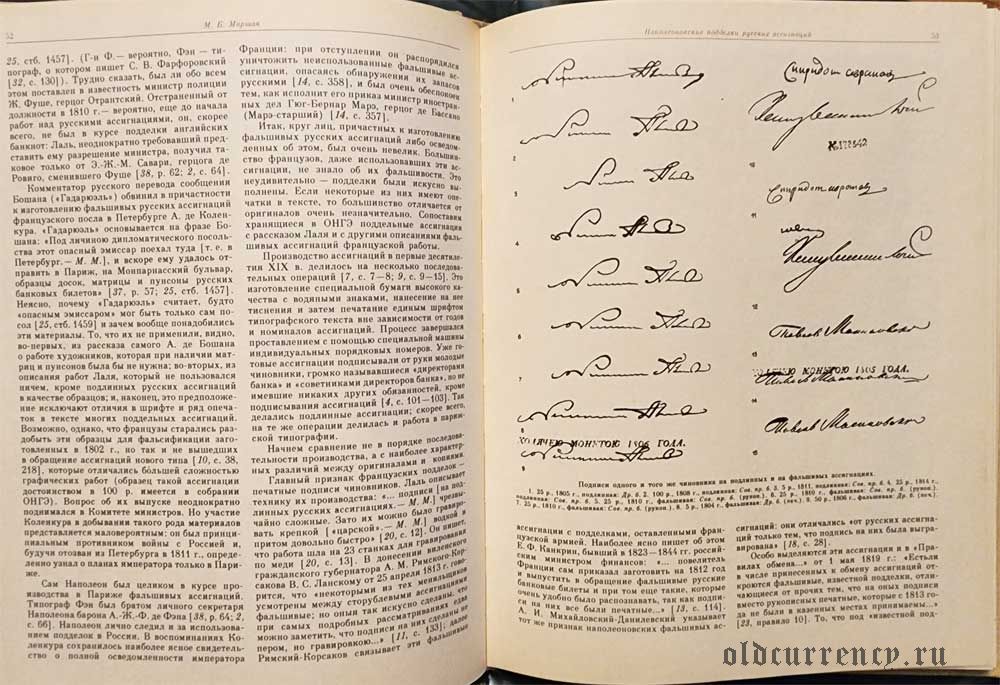 52
М. Б. Маршак
25, стб. 1457]. (Г-н Ф.— вероятно, Фэн — ти-
пограф, о котором пишет С. В. Фарфоровский
[32, с. 130]). Трудно сказать, был ли обо всем
этом поставлен в известность министр полиции
Ж. Фуше, герцог Отрантский. Отстраненный от
должности в 1810 г.— вероятно, еще до начала
работ над русскими ассигнациями, он, скорее
всего, не был в курсе подделки английских
банкнот: Лаль, неоднократно требовавший пред-
ставить ему разрешение министра, получил та-
ковое только от Э.-Ж.-М. Савари, герцога де
Ровиго, сменившего Фуше [38, р. 62; 2, с. 64].
Комментатор русского перевода сообщения
Бошана («Гадарюэль») обвинил в причастности
к изготовлению фальшивых русских ассигнаций
французского посла в Петербурге А. де Колен-
кура. «Гадарюэль» основывается на фразе Бо-
шана: «Под личиною дипломатического посоль-
ства этот опасный эмиссар поехал туда [т. е. в
Петербург.— М. М.], и вскоре ему удалось от-
править в Париж, на Монпарнасский бульвар,
образцы досок, матрицы и пунсоны русских
банковых билетов» [37, р. 57; 25, стб. 1457].
Неясно, почему «Гадарюэль» считает, будто
«опасным эмиссаром» мог быть только сам по-
сол [25, стб. 1459] и зачем вообще понадобились
эти материалы. То, что их не применили, видно,
во-первых, из рассказа самого А. де Бошана
о работе художников, которая при наличии мат-
риц и пунсонов была бы не нужна; во-вторых, из
описания работ Лаля, который не пользовался
ничем, кроме подлинных русских ассигнаций
в качестве образцов; и, наконец, это предположе-
ние исключают отличия в шрифте и ряд опеча-
ток в тексте многих поддельных ассигнаций.
Возможно, однако, что французы старались раз-
добыть эти образцы для фальсификации загото-
вленных в 1802 г., но так и не вышедших
в обращение ассигнаций нового типа [10, с. 38,
218], которые отличались бо́льшей сложностью
графических работ (образец такой ассигнации
достоинством в 100 р. имеется в собрании
ОНГЭ). Вопрос об их выпуске неоднократно
поднимался в Комитете министров. Но участие
Коленкура в добывании такого рода материалов
представляется маловероятным: он был принци-
пиальным противником войны с Россией и,
будучи отозван из Петербурга в 1811 г., опреде-
ленно узнал о планах императора только в Пари-
же.
Сам Наполеон был целиком в курсе про-
изводства в Париже фальшивых ассигнаций.
Типограф Фэн был братом личного секретаря
Наполеона барона А.-Ж.-Ф. де Фэна [38, р. 64; 2,
с. 66]. Наполеон лично следил и за использова-
нием подделок в России. В воспоминаниях Ко-
ленкура сохранилось наиболее ясное свидетель-
ство о полной осведомленности императора
Франции: при отступлении он распорядился
уничтожить неиспользованные фальшивые ас-
сигнации, опасаясь обнаружения их запасов
русскими [14, с. 358], и был очень обеспокоен
тем, как исполнил его приказ министр иностран-
ных дел Гюг-Бернар Марэ, герцог де Бассано
(Марэ-старший) [14, с. 357].
Итак, круг лиц, причастных к изготовлению
фальшивых русских ассигнаций либо осведом-
ленных об этом, был очень невелик. Большин-
ство французов, даже использовавших эти ас-
сигнации, не знало об их фальшивости. Это
неудивительно — подделки были искусно вы-
полнены. Если некоторые из них имеют опе-
чатки в тексте, то большинство отличается от
оригиналов очень незначительно. Сопоставим
хранящиеся в ОНГЭ поддельные ассигнации
с рассказом Лаля и с другими описаниями фаль-
шивых ассигнаций французской работы.
Производство ассигнаций в первые десятиле-
тия XIX в. делилось на несколько последова-
тельных операций [7, с. 7—8; 9, с. 9—15]. Это
изготовление специальной бумаги высокого ка-
чества с водяными знаками, нанесение на нее
тиснения и затем печатание единым шрифтом
типографского текста вне зависимости от годов
и номиналов ассигнаций. Процесс завершался
проставлением с помощью специальной машины
индивидуальных порядковых номеров. Уже го-
товые ассигнации подписывали от руки молодые
чиновники, громко называвшиеся «директорами
банка» и «советниками директоров банка», но не
имевшие никаких других обязанностей, кроме
подписывания ассигнаций [4, с. 101—103]. Так
делались подлинные ассигнации; скорее всего,
на те же операции делилась и работа в париж-
ской типографии.
Начнем сравнение не в порядке последова-
тельности производства, а с наиболее характер-
ных различий между оригиналами и копиями.
Главный признак французских подделок —
печатные подписи чиновников. Лаль описывает
технику их производства: «... подписи [на под-
линных русских ассигнациях.— М. М.] чрезвы-
чайно сложные. Зато их можно было гравиро-
вать крепкой [«царской».— М. М.] водкой и
притом довольно быстро» [20, с. 12]. Он пишет,
что работа шла на 23 станках для гравирования
по меди [20, с. 13]. В донесении виленского
гражданского губернатора А. М. Римского-Кор-
сакова В. С. Ланскому от 25 апреля 1813 г. гово-
рится, что «некоторыми из тех меньщиков
усмотрены между сторублевыми ассигнациями
фальшивые; но оныя так искусно сделаны, что
при самых подробных рассматриваниях едва
можно заметить, что подписи на них сделаны не
пером, но гравировкою...» [11, с. 133]; далее
Римский-Корсаков связывает эти фальшивые
Наполеоновские подделки русских ассигнаций
53
1
2
3
4
5
6
7
8
9
№ 172542
ХОДЯЧЕЮ МОНЕТОЮ 1805 ГОДА.
ХОДЯЧЕЮ МОНЕТОЮ 1806 ГОДА.
Подписи одного и того же чиновника на подлинных и на фальшивых ассигнациях.
ассигнации с подделками, оставленными фран-
цузской армией. Наиболее ясно пишет об этом
Е. Ф. Канкрин, бывший в 1823—1844 гг. россий-
ским министром финансов: «... повелитель
Франции сам приказал заготовить на 1812 год
и выпустить в обращение фальшивые русские
банковые билеты и при том еще такие, которые
очень удобно было распознавать, так как подпи-
си на них все были печатные...» [13, с. 114].
А. И. Михайловский-Данилевский указывает
тот же признак наполеоновских фальшивых ас-
сигнаций: они отличались «от русских ассигна-
ций только тем, что подпись на них была выгра-
вирована» [18, с. 28].
Особо выделяются эти ассигнации и в «Пра-
вилах обмена...» от 1 мая 1819 г.: «Естьли
в числе принесенных к обмену ассигнаций от-
кроются фальшивые, известной подделки, отли-
чающиеся от прочих тем, что на оных подписи
вместо рукописных печатные, которые с 1813 го-
да не были в казенных местах принимаемы...»
[23, правило 10]. То, что под «известной под-
oldcurrency.ru